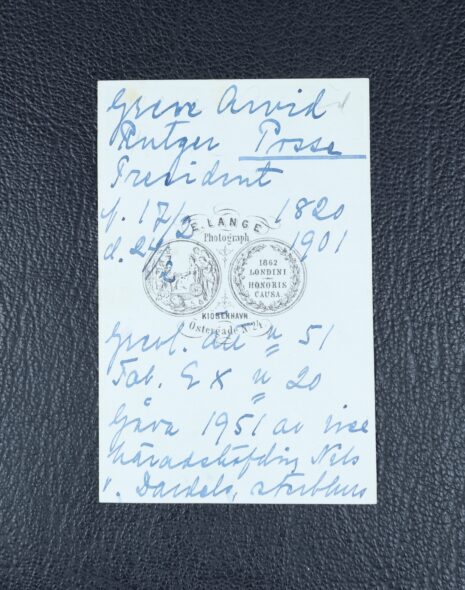 Greve Arvid
Rutger Posse
President
f. 17/2 1820
d. 24/2 1901
E. LANGE
Photograph
1862
LONDINI
HONORIS
CAUSA
KIØBENHAVN
Østergade No 24
Grevl. ätt n 51
Tab. n 20
Gåva 1951 av vice
häradshöfding Nils
v. Dardels, sterbhus